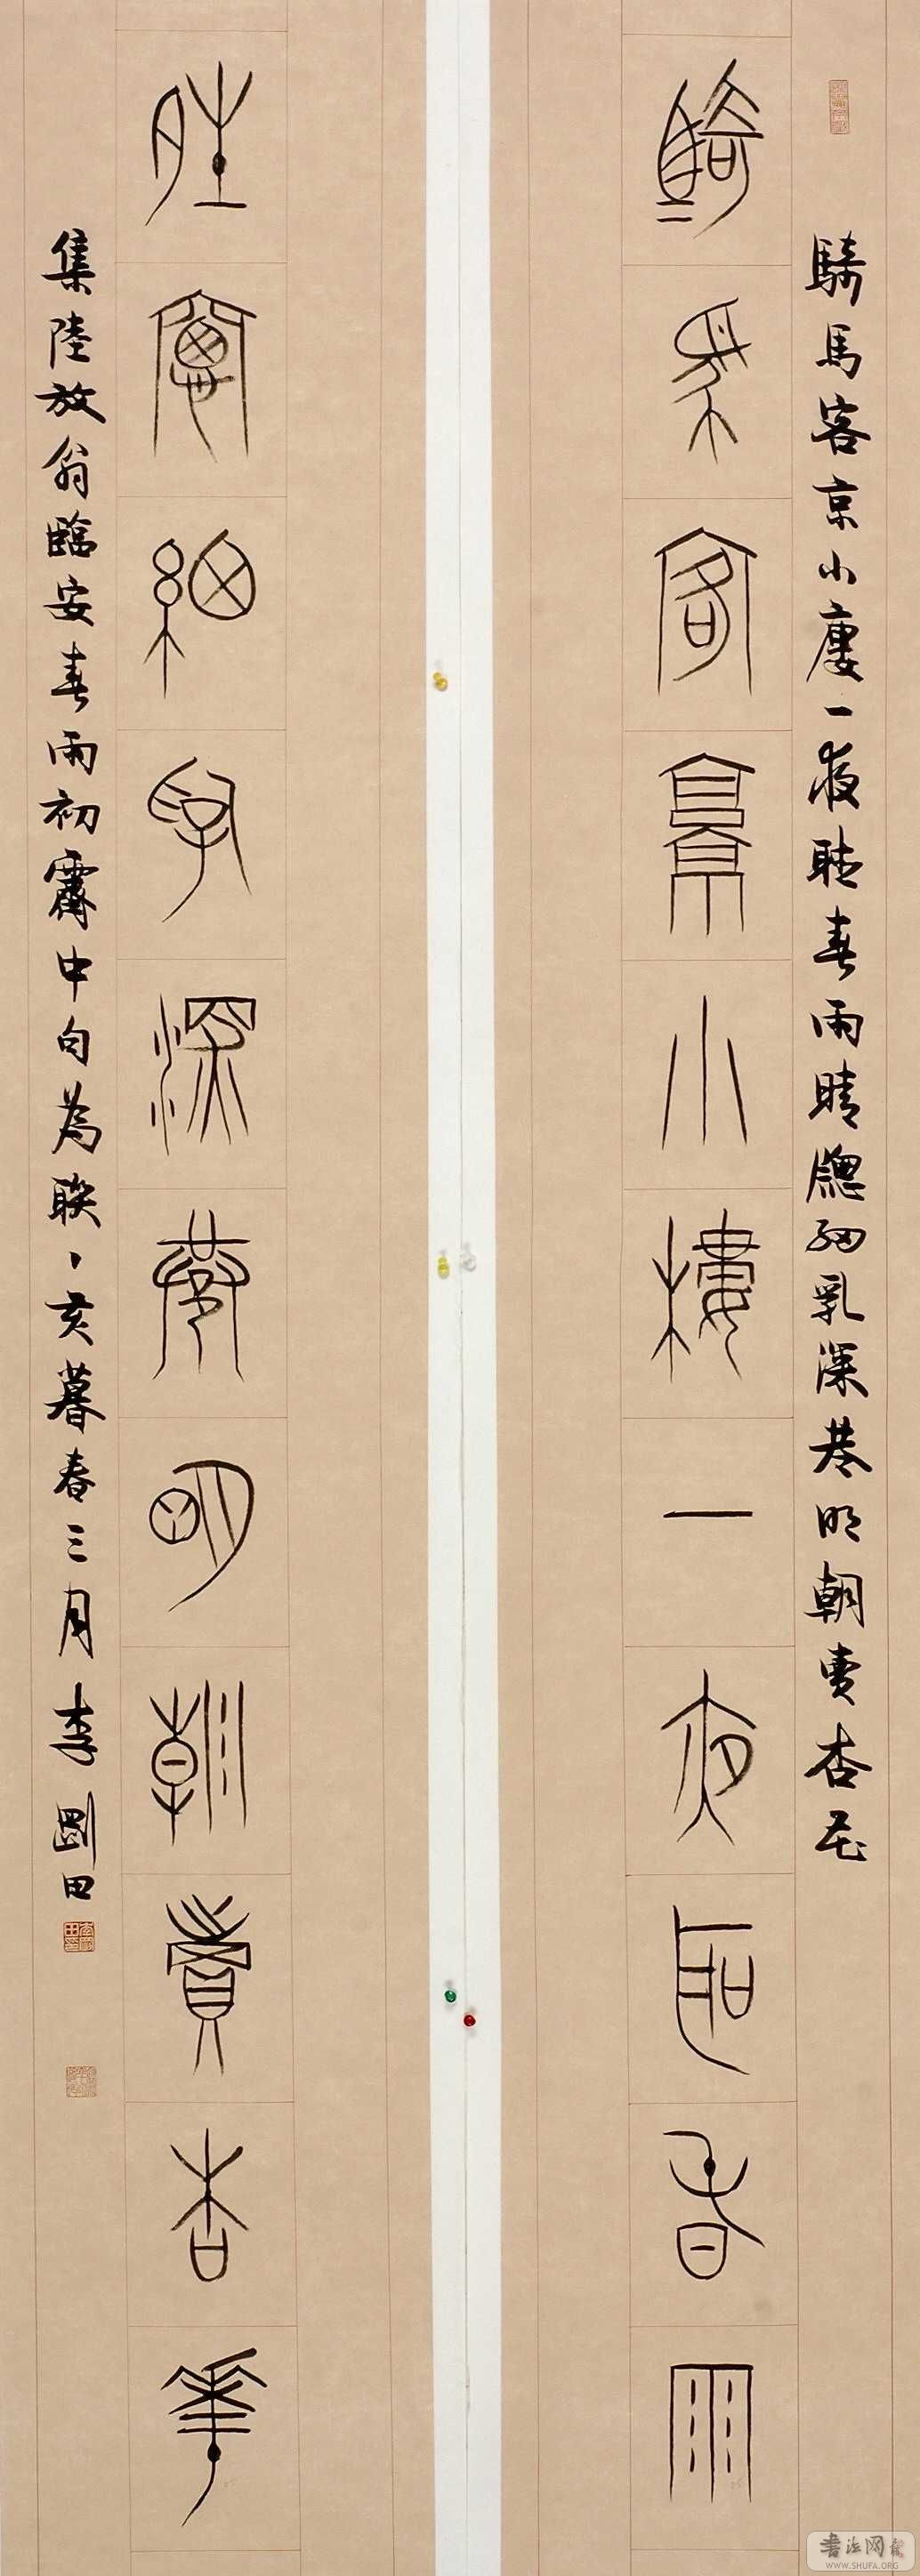 騎馬客京小廔一夜聽春雨晴牕細乳深巷明朝賣杏花
騎馬客京小樓一夜聽春雨
晴窗細乳深巷明朝賣杏華
集陸放翁臨安春雨初霽中句為聯丶亥暮春三月李剛田
書法网
WWW.SHUFA.ORG